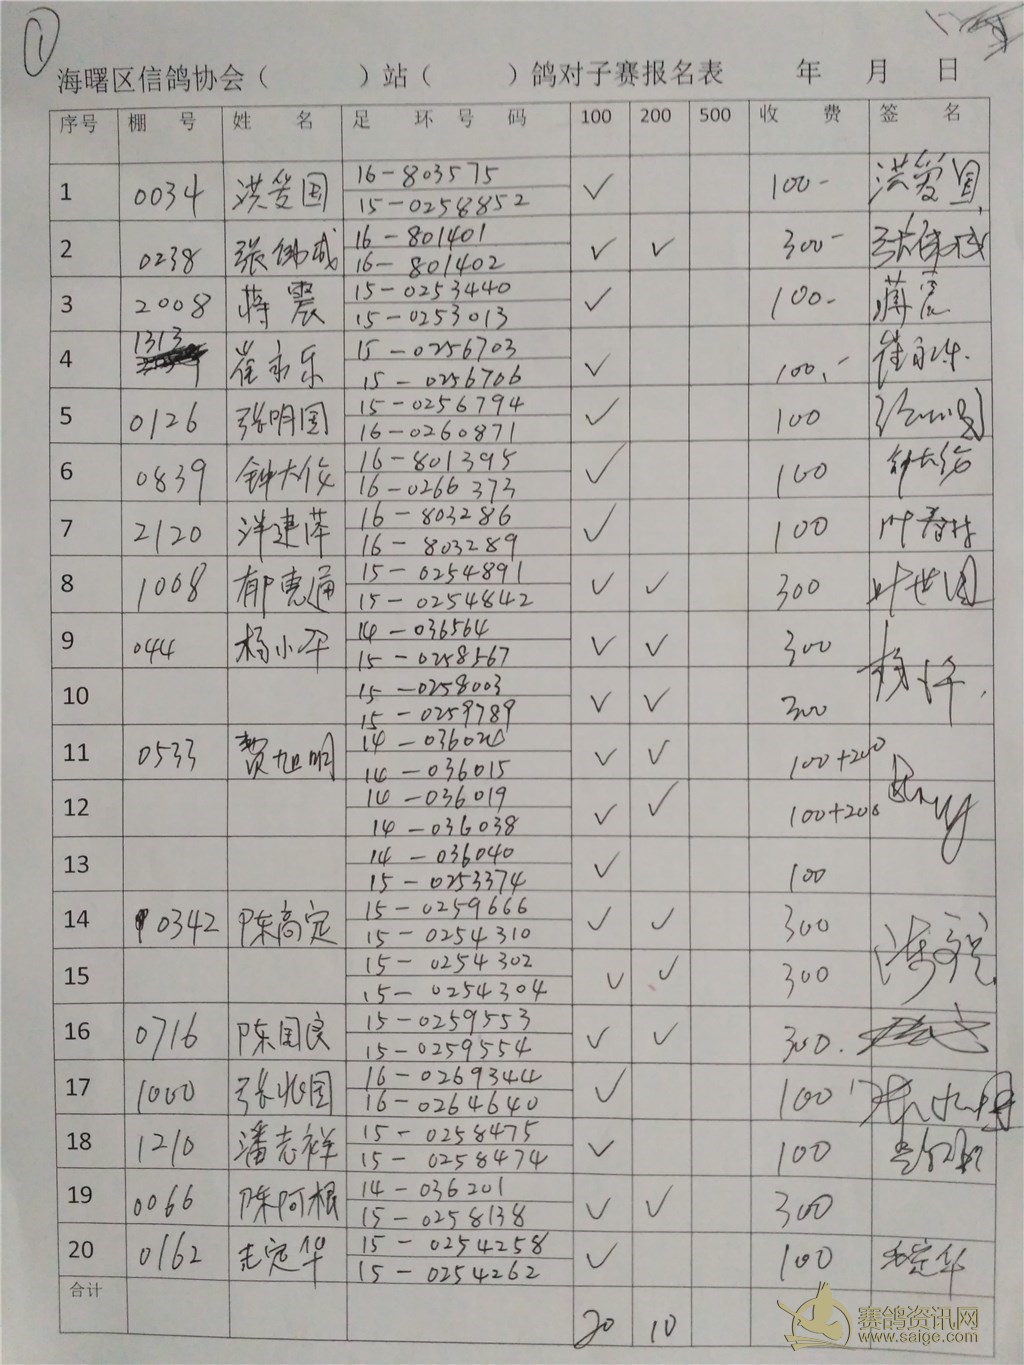 ①
海曙区信鸽协会（ ）站（ ）鸽对子赛报名表 年 月 日
序号 棚 号 姓 名 足 环 号 码 100 200 500 收 费 签 名
1 0034 洪爱国 16-803575 ✓ 100- 洪爱国
15-0258852
2 0238 张伟成 16-801401 ✓ ✓ 300- 张伟成
16-801402
3 2008 蒋震 15-0253440 ✓ 100- 蒋震
15-0253013
4 1313 崔永乐 15-0256703 ✓ 100,- 崔永乐
15-0256706
5 0126 张明国 15-0256794 ✓ 100
16-0260871
6 0839 钟大俊 16-801395 ✓ 100
16-0266373
7 2120 洋建萍 16-803286 ✓ 100
16-803289
8 1008 郁惠通 15-0254891 ✓ ✓ 300 叶世国
15-0254842
9 044 杨小平 14-036564 ✓ ✓ 300
15-0258567
10 15-0258003 ✓ ✓ 300
15-0259789
11 0533 贺旭明 14-036020 ✓ ✓ 100+200
14-036015
12 14-036019 ✓ ✓ 100+200
14-036038
13 14-036040 ✓ 100
15-0253374
14 0342 陈高定 15-0259666 ✓ ✓ 300
15-0254310
15 15-0254302 ✓ ✓ 300
15-0254304
16 0716 陈国良 15-0259553 ✓ ✓ 300.
15-0259554
17 1000 张兆国 16-0269344 ✓ 100
16-0264640
18 1210 潘志祥 15-0258475 ✓ 100
15-0258474
19 0066 陈阿根 14-036201 ✓ ✓ 300
15-0258138
20 0162 毛定华 15-0254258 ✓ 100 毛定华
15-0254262
合计 20 10
赛鸽资讯网
www.saige.com